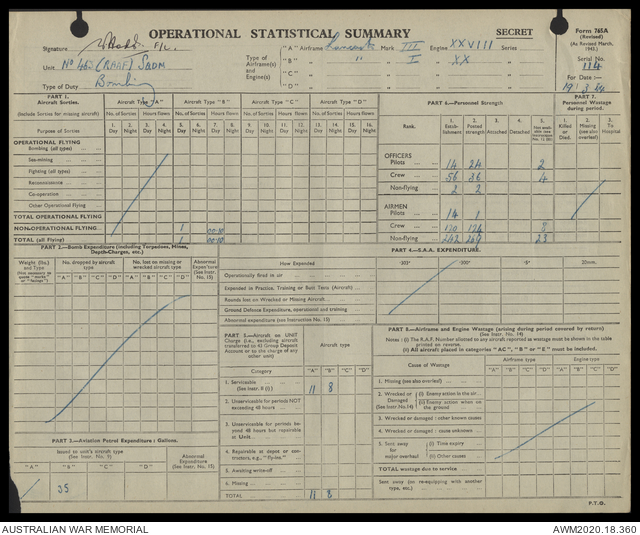 OPERATIONAL STATISTICAL SUMMARY
SECRET
Form 765A
(Revised)
(As Revised March, 1943.)
Signature F/L.
Unit No 463 (RAAF) Sqdn
Type of Duty Bombing
Type of Airframe(s) and Engine(s)
"A" Airframe Lancaster Mark III Engine XXVIII Series
"B" " " I " XX "
"C" " " " "
"D" " " " "
Serial No. 114
For Date:—
PART 1.
Aircraft Sorties.
(Include Sorties for missing aircraft)
Aircraft Type "A"
Aircraft Type "B"
Aircraft Type "C"
Aircraft Type "D"
No. of Sorties Hours flown No. of Sorties Hours flown No. of Sorties Hours flown No. of Sorties Hours flown
Purpose of Sorties
1. Day 2. Night 3. Day 4. Night 5. Day 6. Night 7. Day 8. Night 9. Day 10. Night 11. Day 12. Night 13. Day 14. Night 15. Day 16. Night
OPERATIONAL FLYING
Bombing (all types)
Sea-mining
Fighting (all types)
Reconnaissance
Co-operation
Other Operational Flying
TOTAL OPERATIONAL FLYING
NON-OPERATIONAL FLYING 1 00·10
TOTAL (all Flying) 1 00·10
PART 6.—Personnel Strength
Rank.
1. Establishment
2. Posted strength
3. Attached
4. Detached
5.
OFFICERS
Pilots 14 24 2
Crew 56 36 4
Non-flying 2 2
AIRMEN
Pilots 14 1
Crew 120 124 8
Non-flying 242 269 23
PART 7.
Personnel Wastage during period.
1. Killed or Died.
2. Missing (see also overleaf)
3. To Hospital
PART 2.—Bomb Expenditure (including Torpedoes, Mines, Depth-Charges, etc.)
Weight (lbs.) and Type
No. dropped by aircraft type
No. lost on missing or wrecked aircraft type
Abnormal Expen'ture (See Instr. 15)
"A" "B" "C" "D" "A" "B" "C" "D"
PART 4.—S.A.A. EXPENDITURE.
How Expended
·303" ·500" ·5" 20mm.
Operationally fired in air
Expended in Practice, Training or Butt Tests (Aircraft)
Rounds lost on Wrecked or Missing Aircraft
Ground Defence Expenditure, operational and training
Abnormal expenditure (see Instruction No. 15)
PART 5.—Aircraft on UNIT Charge (i.e., excluding aircraft transferred to 43 Group Deposit Account or to the charge of any other unit)
Aircraft type
Category
"A" "B" "C" "D"
1. Serviceable 11 8
(See Instr. 8 (i).)
2. Unserviceable for periods NOT exceeding 48 hours
3. Unserviceable for periods beyond 48 hours but repairable in Unit
4. Repairable at depot or contractors, e.g., "fly-ins"
5. Awaiting write-off
6. Missing
TOTAL 11 8
PART 8.—Airframe and Engine Wastage (arising during period covered by return)
(See Instr. No. 14)
Notes: (i) The R.A.F. Number allotted to any aircraft reported as wastage must be shown in the table printed on reverse.
(ii) All aircraft placed in categories "AC," "B" or "E" must be included.
Cause of Wastage
Airframe type
Engine type
"A" "B" "C" "D" "A" "B" "C" "D"
1. Missing (see also overleaf)
2. Wrecked or Damaged (See Inst. No.14) (i) Enemy action in the air
(ii) Enemy action when on the ground
3. Wrecked or damaged : other known causes
4. Wrecked or damaged : cause unknown
5. Sent away for major overhaul (i) Time expiry
(ii) Other causes
TOTAL wastage due to service
Sent away (on re-equipping with another type, etc.)
PART 3.—Aviation Petrol Expenditure : Gallons.
Issued to unit's aircraft type
(See Instr. No. 9)
Abnormal Expenditure (See Instr. No. 15)
"A" "B" "C" "D"
35
P.T.O.
AUSTRALIAN WAR MEMORIAL
AWM2020.18.360